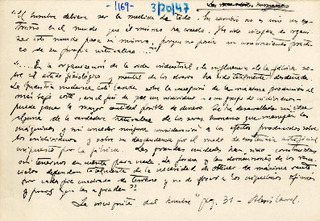 -1169-
3/20/47
"El hombre debiera ser la medida de todo. En cambio no es más un extraño
en el mundo que él mismo ha creado. No sido incapaz de organizar
este mundo para sí mismo, porque no poseía un conocimiento positivo
de su propia naturaleza..."
"... En la organización de la vida industrial, la influencia de la fábrica sobre
el estado fisiológico y mental de los obreros ha sido
La industria moderna está basada sobre la concepción de la máxima producción al
precio más bajo, con el fin de que un individuo o un grupo de individuos
puedan ganar la mayor cantidad posible de dinero. Se ha desarrollado sin idea
alguna de la verdadera naturaleza de los seres humanos que manejan las
máquinas y sin conceder ninguna consideración a los efectos producidos sobre
los individuos y sobre su descendencia por el modo de existencia artificial
impuesto por la fábrica. Las grandes ciudades han sido construidas
sin tenernos en cuenta para nada. La forma y las dimensiones de los
dependen de la necesidad de obtener la máxima renta
por cada pie cuadrado de terreno y de ofrecer a los inquilinos oficinas
y pisos que les agraden."
La incógnita del hombre pág. 31 - Alexis Carrel.